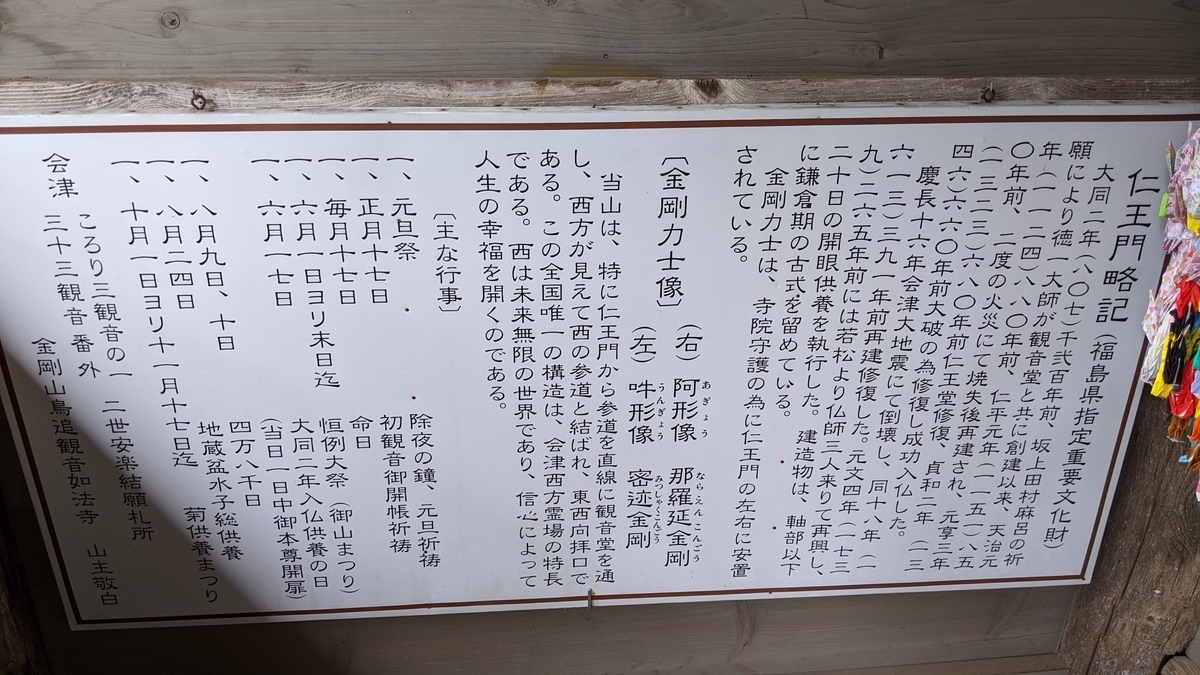 仁王門略記(福島県指定重要文化財)
大同二年(八〇七)千弐百年前、坂上田村麻呂の祈
願により徳一大師が観音堂と共に創建以来、天治元
年(一一二四)八八〇年前、仁平元年(一一五一)八五
〇年前、二度の火災にて焼失後再建され、元亨三年
(一三二三)六八〇年前仁王堂修復、貞和二年(一三
四六)六六〇年前大破の為修復し成功入仏した。
慶長十六年会津大地震にて倒壊し、同十八年(一
六一三)三九一年前再建修復した。元文四年(一七三
九)二六五年前には若松より仏師三人来りて再興し、
二十日の開眼供養を執行した。建造物は、軸部以下
に鎌倉期の古式を留めている。
金剛力士は、寺院守護の為に仁王門の左右に安置
されている。
〔金剛力士像〕(右)阿形像 那羅延金剛
あぎょう ならえんこんごう
(左)吽形像 密迹金剛
うんぎょう みつしゃくこんごう
当山は、特に仁王門から参道を直線に観音堂を通
し、西方が見えて西の参道と結ばれ、東西向拝口で
ある。この全国唯一の構造は、会津西方霊場の特長
である。西は未来無限の世界であり、信心によって
人生の幸福を開くのである。
〔主な行事〕
一、元旦祭 除夜の鐘、元旦祈祷
一、正月十七日 初観音御開帳祈祷
一、毎月十七日 命日
一、六月一日ヨリ末日迄 恒例大祭(御山まつり)
一、六月一七日 大同二年入仏供養の日
(当日一日中御本尊開扉)
一、八月九日、十日 四万八千日
一、八月二四日 地蔵盆水子総供養
一、十月一日ヨリ十一月十七日迄 菊供養まつり
ころり三観音の一 二世安楽結願札所
会津 三十三観音番外 金剛山鳥追観音如法寺 山主敬白